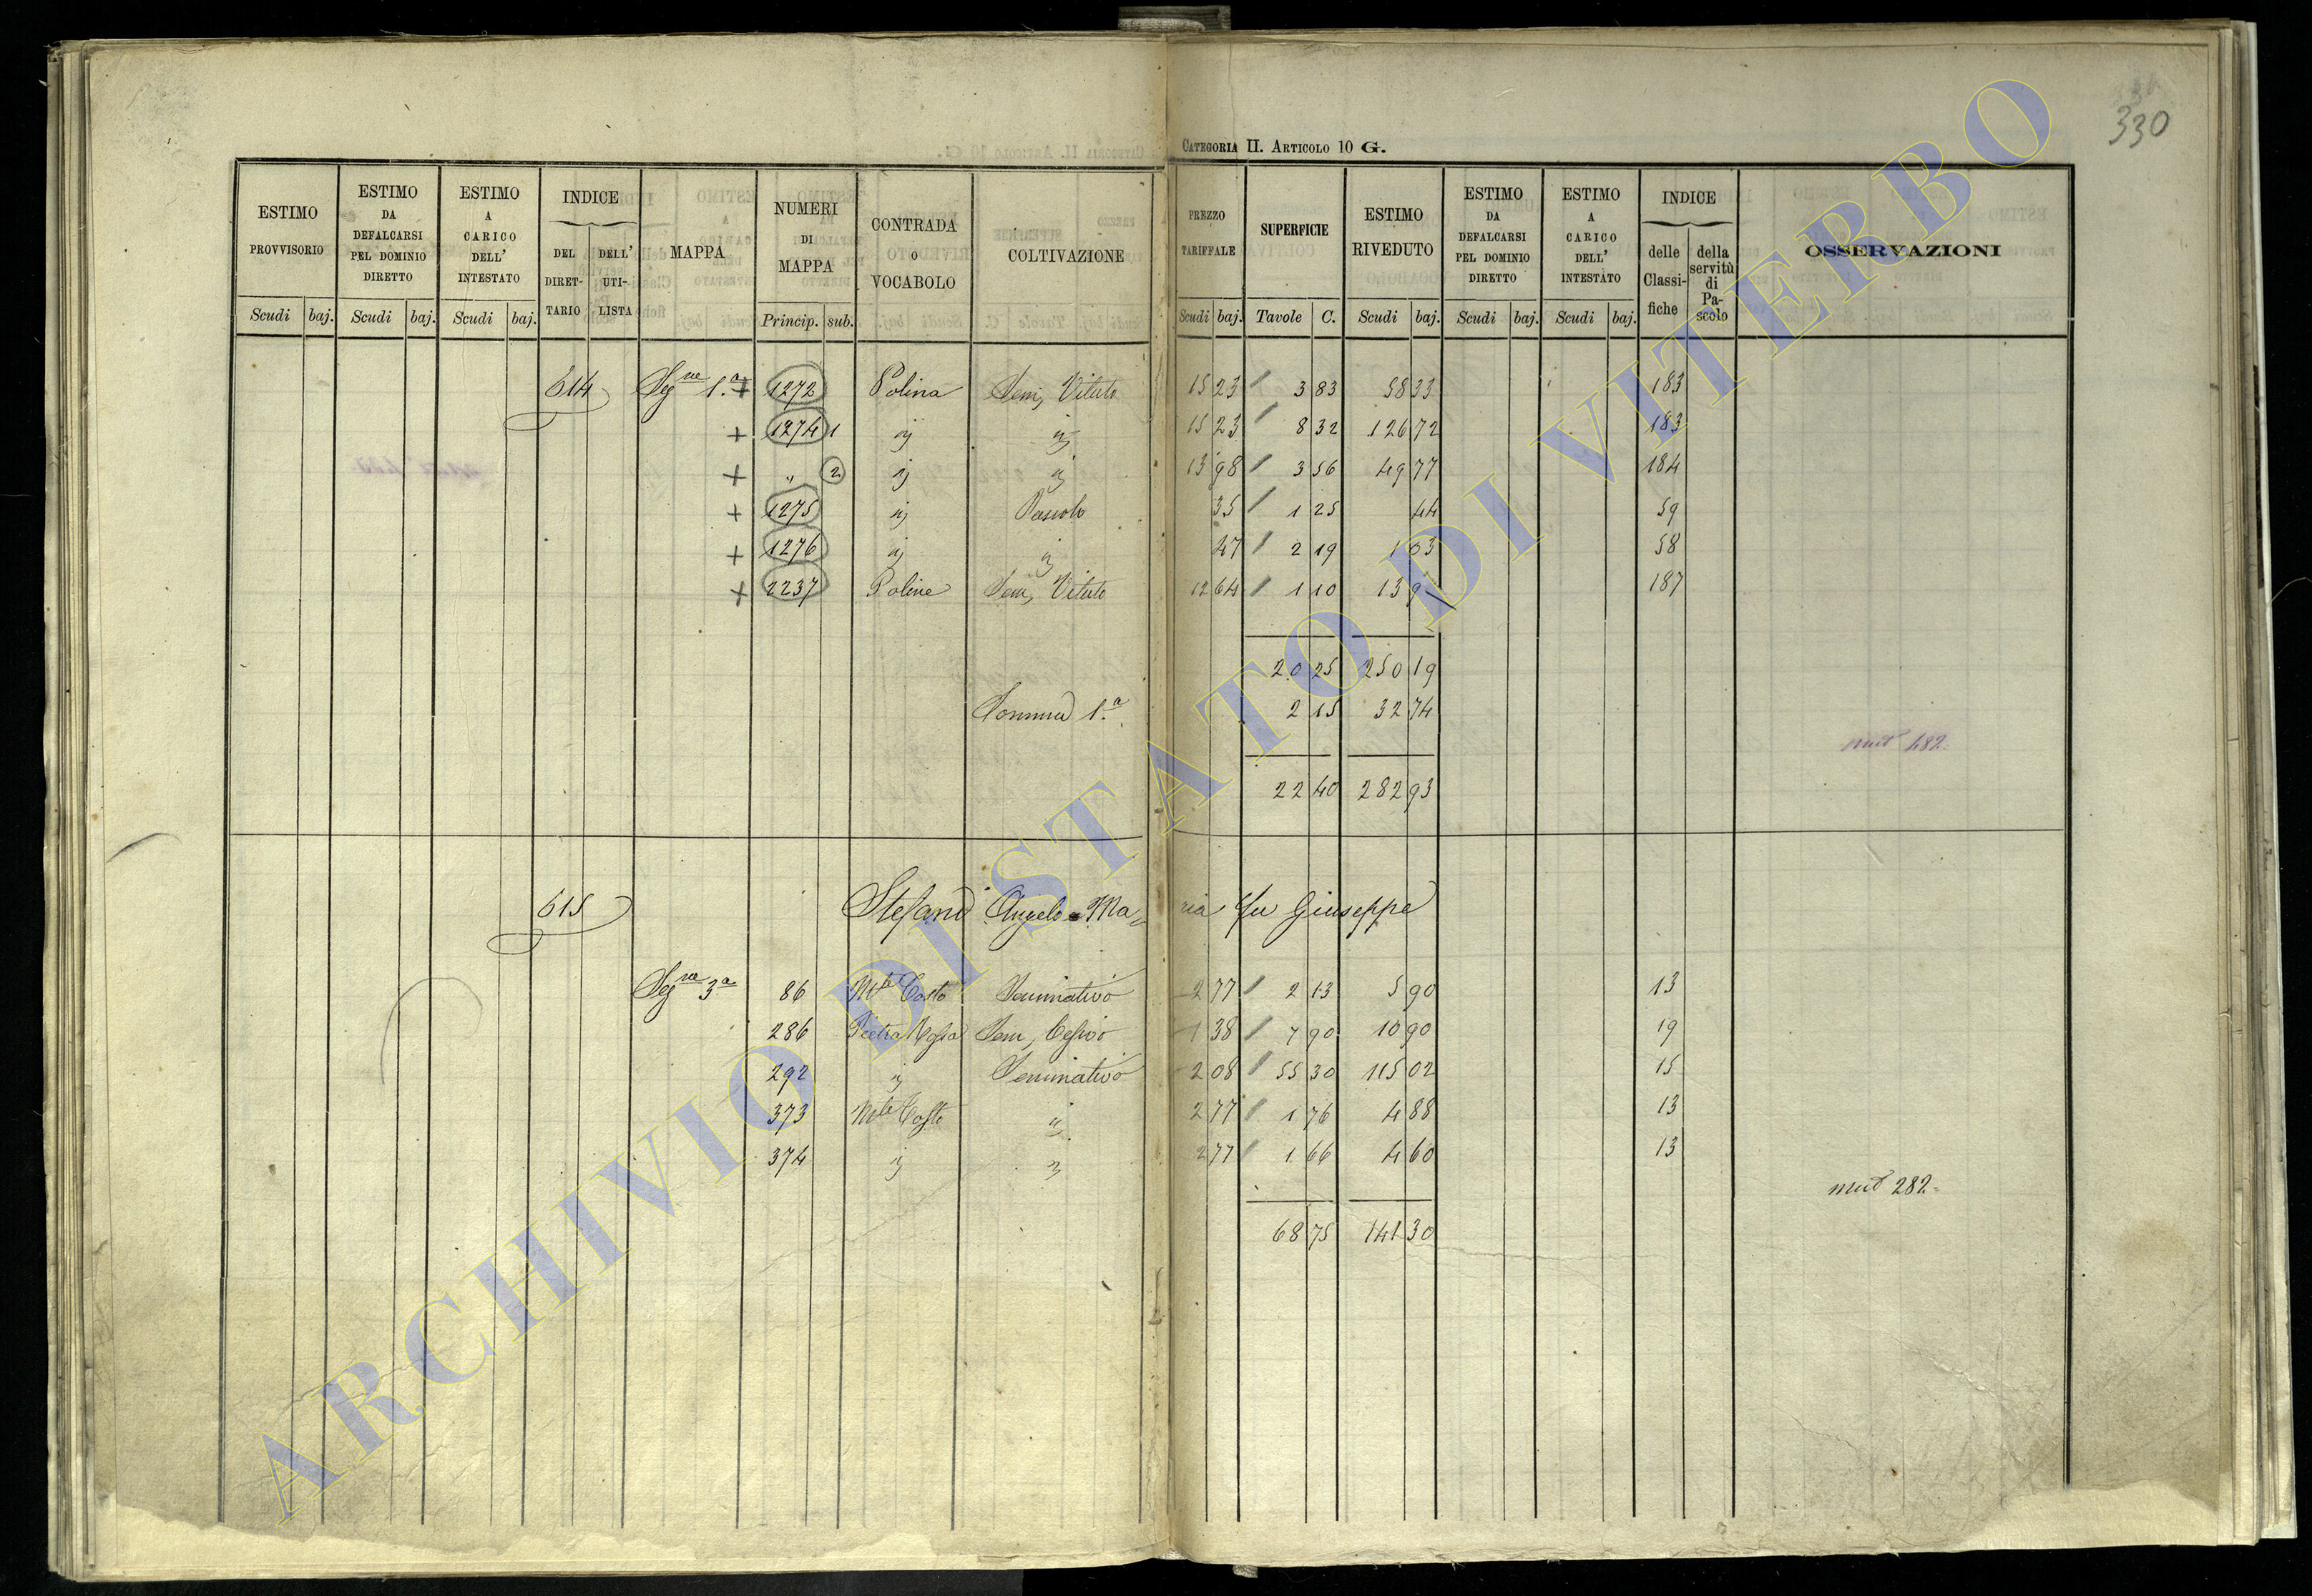 330
CATEGORIA II. ARTICOLO 10 G.
ESTIMO PROVVISORIO Scudi baj.
ESTIMO DA DEFALCARSI PEL DOMINIO DIRETTO Scudi baj.
ESTIMO A CARICO DELL' INTESTATO Scudi baj.
INDICE DEL DIRET-TARIO DELL' UTI-LISTA
MAPPA
NUMERI DI MAPPA Princip. sub.
CONTRADA o VOCABOLO
COLTIVAZIONE
PREZZO TARIFFALE Scudi baj.
SUPERFICIE Tavole C.
ESTIMO RIVEDUTO Scudi baj.
ESTIMO DA DEFALCARSI PEL DOMINIO DIRETTO Scudi baj.
ESTIMO A CARICO DELL' INTESTATO Scudi baj.
INDICE delle Classi-fiche della servitù di Pa-scolo
OSSERVAZIONI
614 Segne 1.a + 1272 Polina Sem, Vitato 15 23 3 83 58 33 183
+ 1274 1 ij ij 15 23 8 32 126 72 183
+ " 2 ij ij 13 98 3 56 49 77 184
+ 1275 ij Pascolo 35 1 25 44 59
+ 1276 ij ij 47 2 19 1 03 58
+ 2237 Poline Sem, Vitato 12 64 1 10 13 9 187
20 25 250 19
Somma 1.a 2 15 32 74
mut 482.
22 40 282 93
615 Stefani Angelo Ma= ria fu Giuseppe
Segne 3a 86 Mte Casto Seminativo 2 77 2 13 5 90 13
286 Pietra Sem, 1 38 7 90 10 90 19
292 ij Seminativo 2 08 55 30 115 02 15
373 Mte Casto ij 2 77 1 76 4 88 13
374 ij ij 2 77 1 66 4 60 13
mut 282=
68 75 141 30
ARCHIVIO DI STATO DI VITERBO